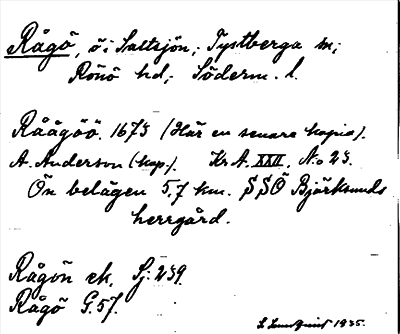 Rågö, ö i Saltsjön, Tystberga sn;
Rönö hd; Söderm. l.
Råågöö 1673 (Här en senare kopia).
A. Anderson (kop.). Kr A. XXII, No 23.
Ön belägen 5,7 km. SSÖ Björksunds
herrgård.
Rågön ek. Sj: 239.
Rågö G. 57.
S. Lundqvist 1935.